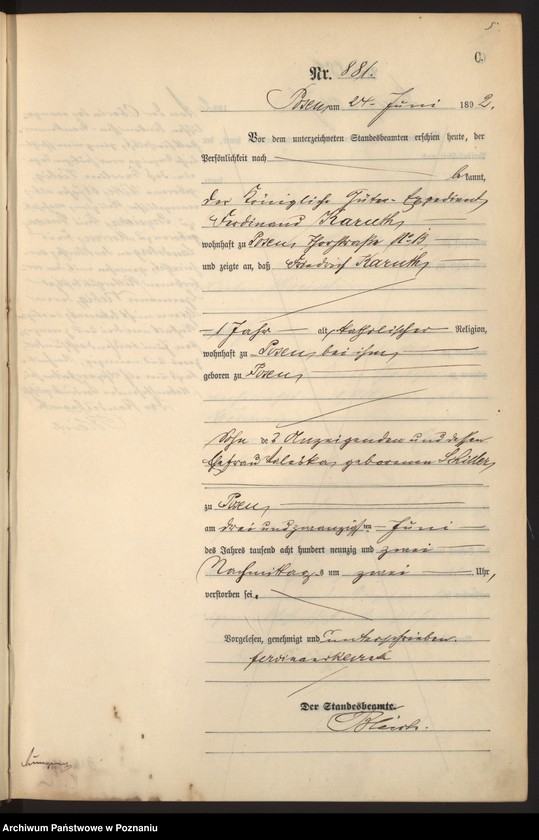 5
C.
Nr. 881.
Posen, am 24. Juni 1892.
Vor dem unterzeichneten Standesbeamten erschien heute, der
Persönlichkeit nach
bekannt,
der Königliche Güter-Expedient
Ferdinand Karuth,
wohnhaft zu Posen,
und zeigte an, daß Friedrich Karuth,
1 Jahr alt, katholischer Religion,
wohnhaft zu Posen, bei ihm,
geboren zu Posen,
Sohn des Anzeigenden und dessen
Ehefrau Valeska, geborenen Schiller,
zu Posen,
am drei und zwanzigsten Juni
des Jahres tausend acht hundert neunzig und zwei
Nachmittags um zwei Uhr,
verstorben sei.
Vorgelesen, genehmigt und unterschrieben.
Der Standesbeamte.
Archiwum Państwowe w Poznaniu